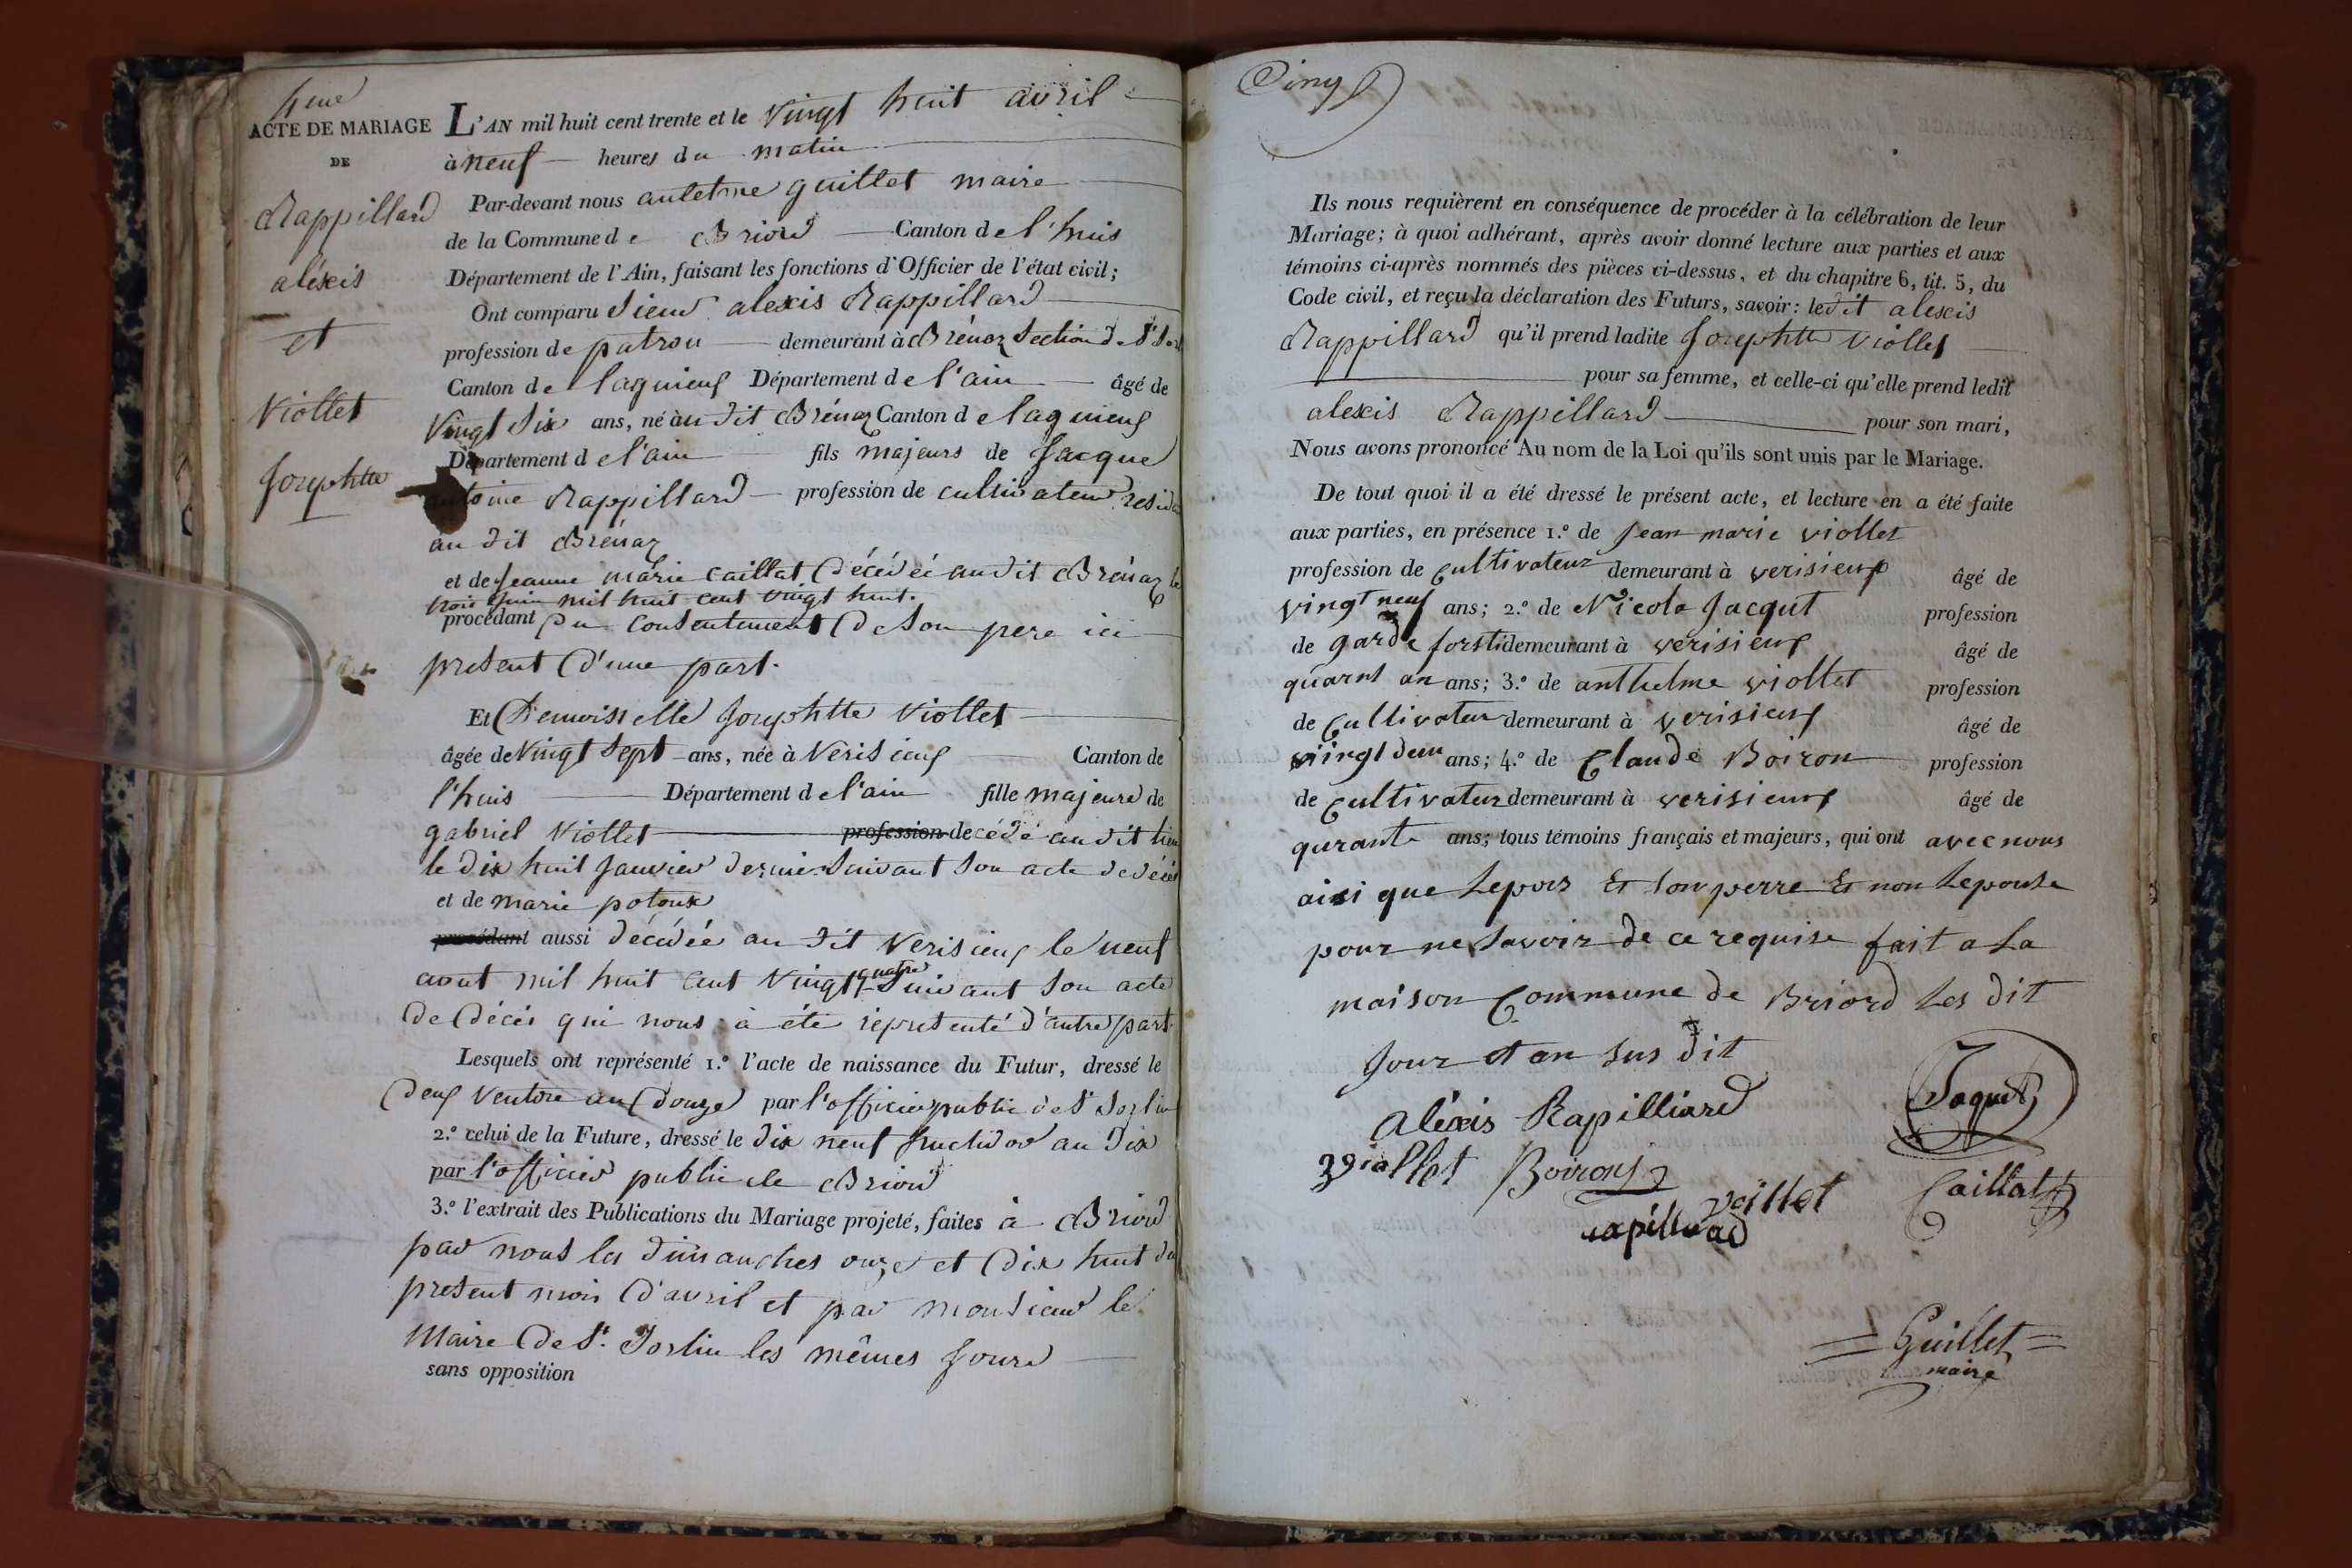 4eme
ACTE DE MARIAGE
DE
Rappillard
aléxis
et
Viollet
Josephtte
L'AN mil huit cent trente et le vingt huit avril
à neuf heures du matin
Par-devant nous antelme guillet maire
de la Commune de Briord Canton de l'huis
Département de l'Ain, faisant les fonctions d'Officier de l'état civil;
Ont comparu Sieur alexis Rappillard
profession de patron demeurant à Brénaz Section de St Sorl
Canton de lagnieuf Département de l'ain âgé de
Vingt Six ans, né audit Brénaz Canton de lagnieuf
Département de l'ain fils majeurs de Jacque
antoine Rappillard profession de cultivateur resid
au dit Brénaz
et de Jeanne marie caillat Décédée audit Brénaz le
trois Juin mil huit cent vingt huit.
procédant Du Consentement De Son pere ici
present D'une part.
Et Demoisselle Josephtte Viollet
âgée de Vingt Sept ans, née à Verisieuf Canton de
l'huis Département de l'ain fille majeure de
gabriel Viollet profession decédé audit lieu
le dix huit Janvier dernier Suivant Son acte de décès
et de marie potoux
procédant aussi décédée au dit Verisieuf le neuf
aout mil huit cent Vingt quatre Suivant Son acte
De Décès qui nous à été représenté d'autre part.
Lesquels ont représenté 1.º l'acte de naissance du Futur, dressé le
Deuf Ventose an Douze par l'officier public de St Sorlin
2.º celui de la Future, dressé le dix neuf fructidor an dix
par l'officier public de Briord
3.º l'extrait des Publications du Mariage projeté, faites à Briord
par nous les dimanches onze et Dix huit du
present mois D'avril et par monsieur le
Maire De St. Sorlin les mêmes Jours
sans opposition
Cinq
Ils nous requièrent en conséquence de procéder à la célébration de leur
Mariage; à quoi adhérant, après avoir donné lecture aux parties et aux
témoins ci-après nommés des pièces ci-dessus, et du chapitre 6, tit. 5, du
Code civil, et reçu la déclaration des Futurs, savoir: ledit alexis
Rappillard qu'il prend ladite Josephtte Viollet
pour sa femme, et celle-ci qu'elle prend ledit
alexis Rappillard pour son mari,
Nous avons prononcé Au nom de la Loi qu'ils sont unis par le Mariage.
De tout quoi il a été dressé le présent acte, et lecture en a été faite
aux parties, en présence 1.º de Jean marie viollet
profession de Cultivateur demeurant à verisieuf âgé de
vingt neuf ans; 2.º de Nicola Jacqut profession
de garde forsti demeurant à verisieuf âgé de
quarnt an ans; 3.º de anthelme viollet profession
de Cultivatur demeurant à verisieuf âgé de
viingt deux ans; 4.º de Claude Boiron profession
de Cultivatur demeurant à verisieuf âgé de
qurante ans; tous témoins français et majeurs, qui ont avec nous
ainsi que Lepous Et son perre Et non Lepouse
pour ne Savoir de ce requise fait a La
maison Commune de Briord Les dit
Jour et an Sus dit
aléxis Rapilliard
Jaquet
viollet Boiron
Caillat
viollet
rapilliard
Guillet
maire